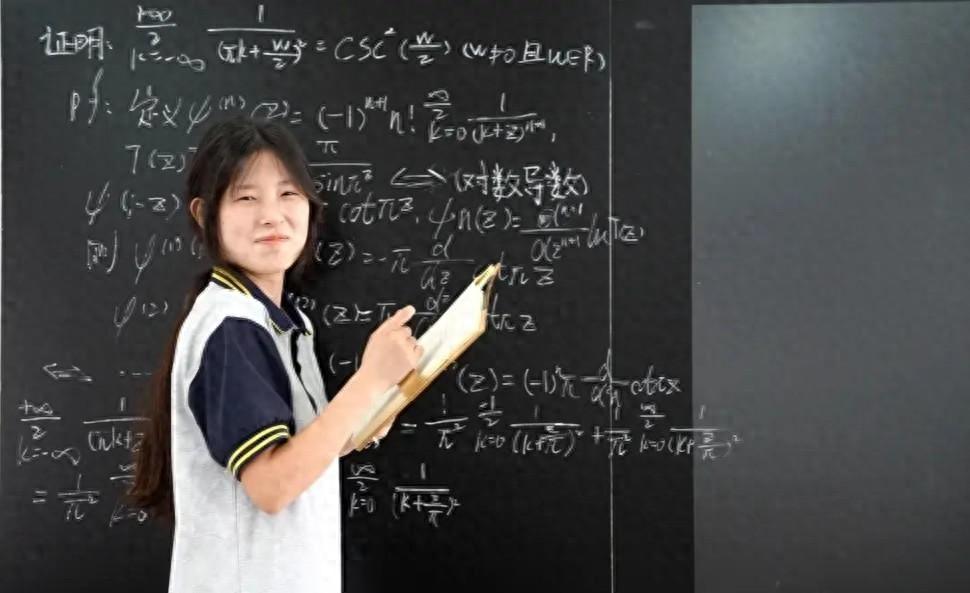 证明: +∞ Σ k=-∞ 1/(πk+w/2)² = CSC²(w/2) (w≠0且w∈R)
Pf: 定义ψ⁽ⁿ⁾(z)=(-1)ⁿ⁺¹n! ∞ Σ k=0 1/(k+z)ⁿ⁺¹,
T(z) π/sinπz ⟺ (对数导数)
ψ(1-z) cotπz, ψn(z)=dⁿ⁺¹/dzⁿ⁺¹ lnT(z)
则 ψ⁽¹⁾( (z)=-π d/dz cotπz
ψ⁽²⁾ ⁽²⁾(z)=π d²/ cotπz
⟺ ... (-1) (z)=(-1)ⁿπ dⁿ/dzⁿ cotπz
+∞ Σ k=-∞ 1/(πk+z = 1/π² -1 Σ 1/(k+z/π)² + 1/π² ∞ Σ k=0 1/(k+z/π)²
= 1/π² ∞ Σ k=0 ∞ Σ k=0 1/(k+z/π)²